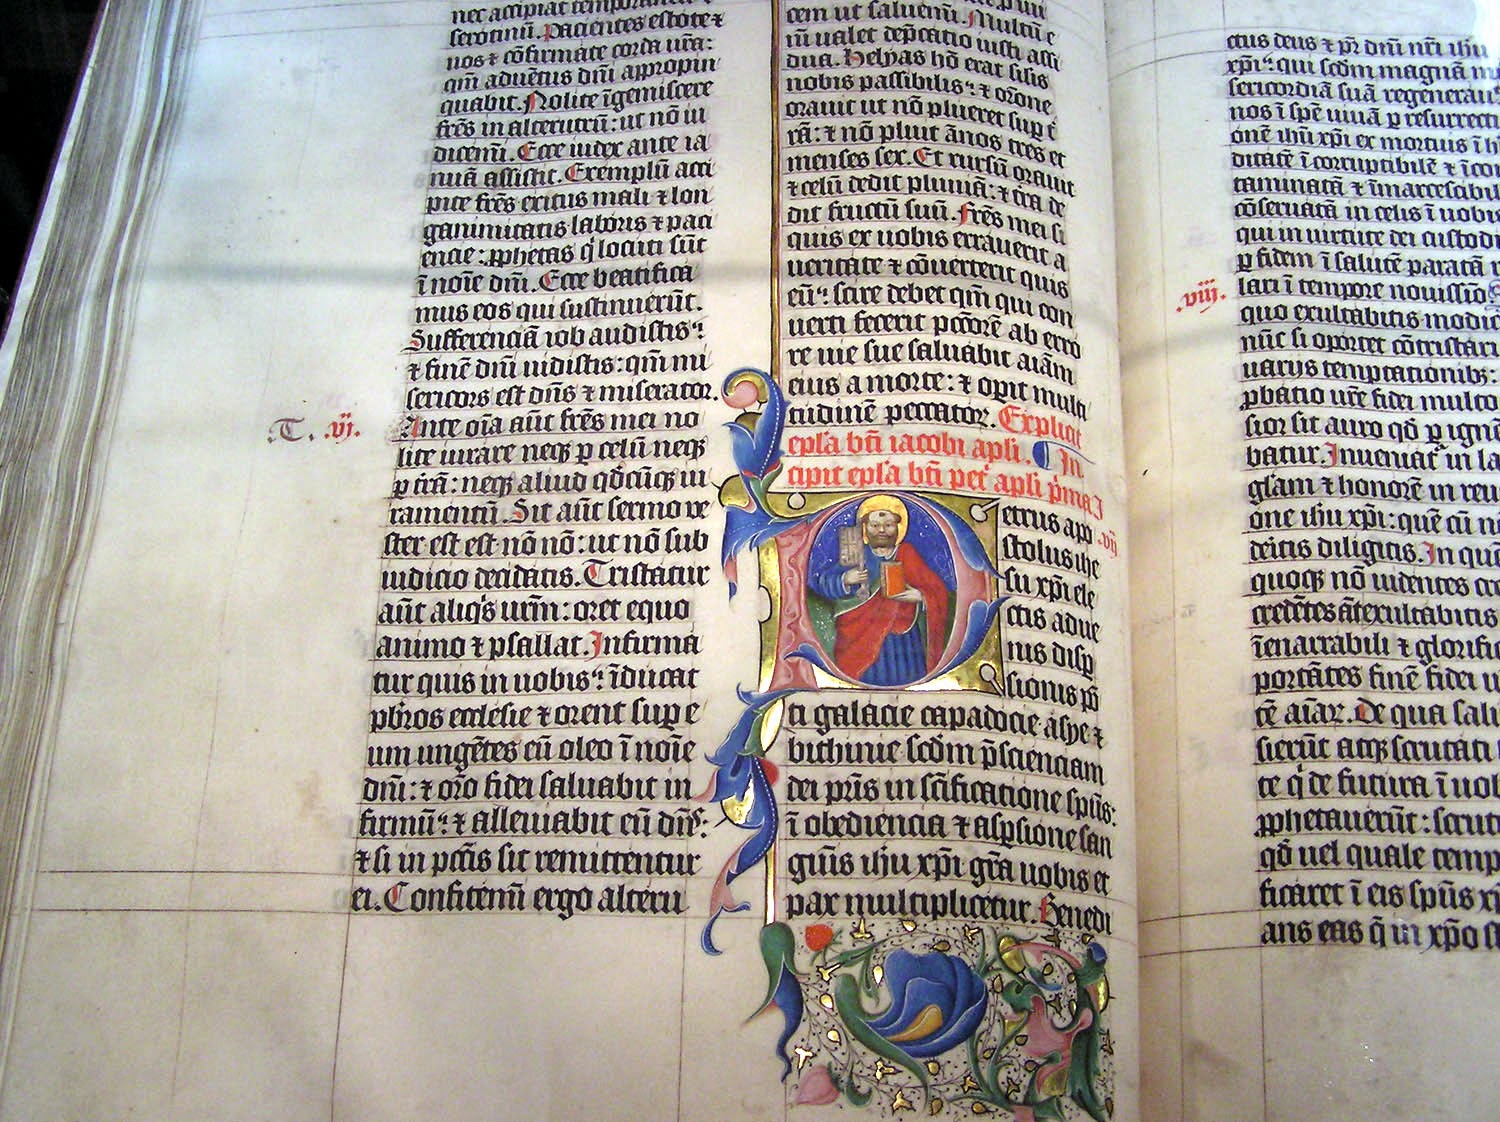 nec accipiat temporan
serotinū. Pacientes estote ⁊
uos ⁊ cōfirmate corda ur̄a:
qm̄ aduētus dn̄i appropin
quabit. Nolite īgemiscere
fr̄es in alterutrū: ut nō iu
dicem̄i. Ecce iudex ante ia
nuā assistit. Exemplū acci
pite fr̄es exitus mali ⁊ lon
ganimitatis laboris ⁊ paci
encie: ꝓphetas q̄ locuti sūt
ī noīe dn̄i. Ecce beatifica
mus eos qui sustinuerūt.
Sufferenciā iob audistis:
⁊ finē dn̄i uidistis: qm̄ mi
sericors est dn̄s ⁊ miserator.
.T. .vj. Ante oīa aūt fr̄es mei no
lite iurare neqꝫ ꝑ celū neqꝫ
ꝑ tr̄ā: neqꝫ aliud qd̄cūqꝫ iu
ramentū. Sit aūt sermo ve
ster est est nō nō: ut nō sub
iudicio decidatis. Tristatur
aūt aliqs ur̄m: oret equo
animo ⁊ psallat. Infirma
tur quis in uobis: īducat
pb̄ros ecclesie ⁊ orent suꝑ e
um ungētes eū oleo ī noīe
dn̄i: ⁊ or̄o fidei saluabit in
firmū: ⁊ alleuiabit eū dn̄s:
⁊ si in pctīs sit remittentur
ei. Confitem̄i ergo alteru
cem ut saluem̄i. Multū e
ī ualet dep̄catio iusti assi
dua. Helyas hō erat silis
nobis passibilis: ⁊ or̄one
orauit ut nō plueret suꝑ t̄
rā: ⁊ nō pluit ānos tres et
menses sex. Et rursū orauit
⁊ celū dedit pluuiā: ⁊ tr̄a de
dit fructū suū. Fr̄es mei si
quis ex uobis errauerit a
ueritate ⁊ cōuerterit quis
eū: scire debet qm̄ qui con
uerti fecerit pctōrē ab erro
re uie sue saluabit aīam
eius a morte: ⁊ opit multi
tudinē peccator. Explicit
epl̄a bt̄i iacobi apl̄i. In
cipit epl̄a bt̄i pet apl̄i p̄ma
etrus apo .vij.
stolus ihe
su xp̄i ele
ctis adue
nis disꝑ
sionis pō
ti galacie capadocie asye ⁊
bithinie scd̄m p̄scienciam
dei pr̄is in sc̄ificatione sp̄us:
ī obediencia ⁊ asꝑsione san
guīs ih̄u xp̄i gr̄a uobis et
pax multiplicetur. Benedi
ctus deus ⁊ pr̄ dn̄i nr̄i ih̄u
xp̄i: qui scd̄m magnā m
sericordiā suā regenerau
nos ī spē uiuā ꝑ resurrecti
onē ih̄u xp̄i ex mortuis ī h
ditatē ī corruptibilē ⁊ īcon
taminatā ⁊ īmarcescibil
cōseruatā in celis ī uobis
qui in uirtute dei custodi
ꝑ fidem ī salutē paratā r
.viij. lari ī tempore nouissīo
quo exultabitis modic
nūc si oportet cōtristari
uarijs temptationibꝫ:
ꝓbatio ur̄e fidei multo
sior sit auro qd̄ ꝑ ignē
batur. Inueniat in la
gl̄am ⁊ honorē in reu
one ih̄u xp̄i: quē cū n
deitis diligitis. In quē
quoqꝫ nō uidentes cr
credētes āt exultabitis
īenarrabili ⁊ glorific
portātes finē fidei u
tē aīaꝝ. De qua sali
sierūt atqꝫ scrutati
te q̄ de futura ī uob
ꝓphetauerūt: scrut
qd̄ uel quale temp
ficaret ī eis sp̄us xp̄
ans eas q̄ in xp̄o s